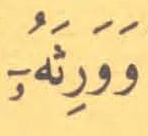 وَوَرِثَهُۥٓ